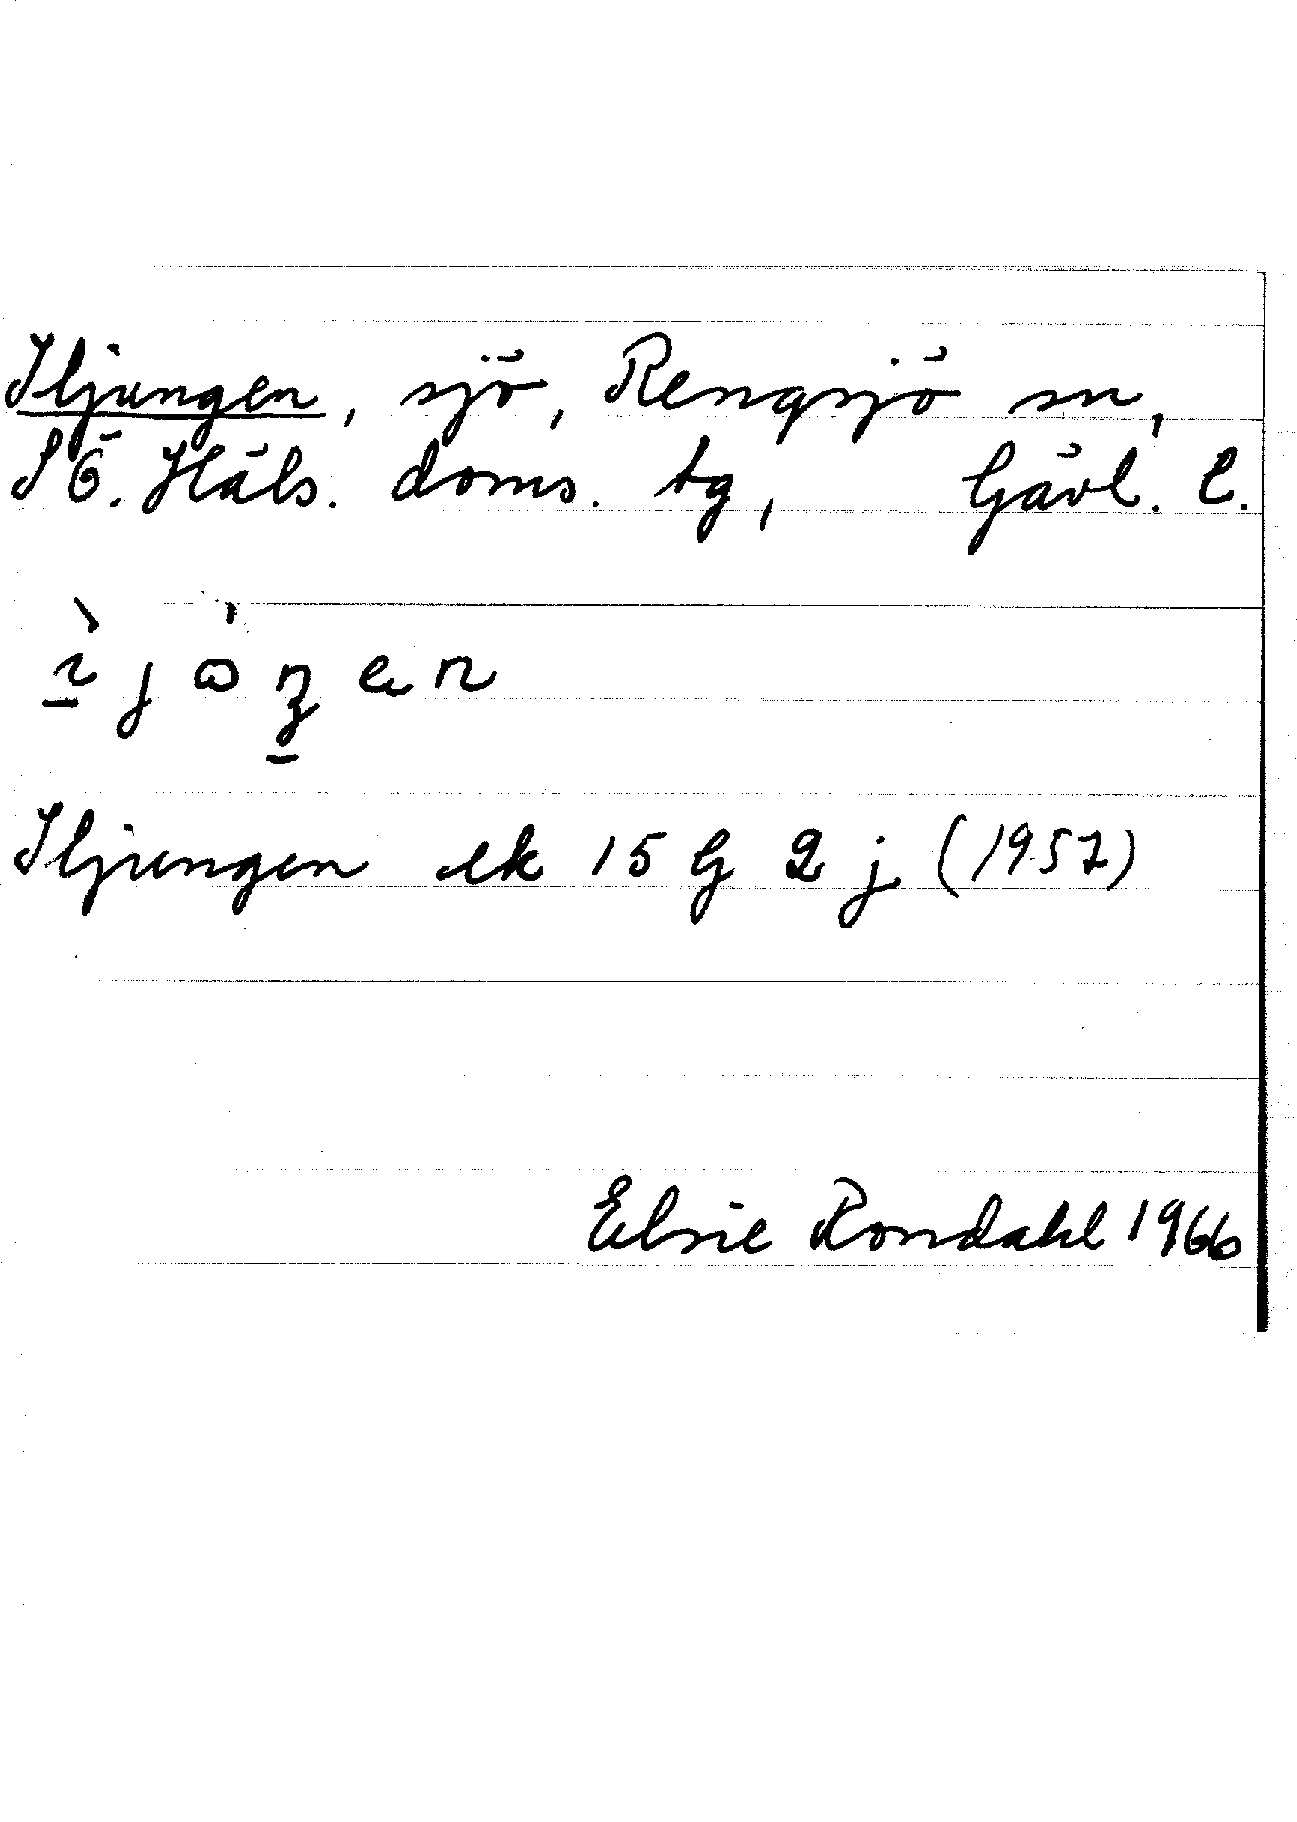 Iljungen, sjö, Rengsjö sn,
SÖ. Häls. doms. tg, Gävl. l.
Iljungen ek 15 G 2 j (1957)
Elsie Rondahl 1966